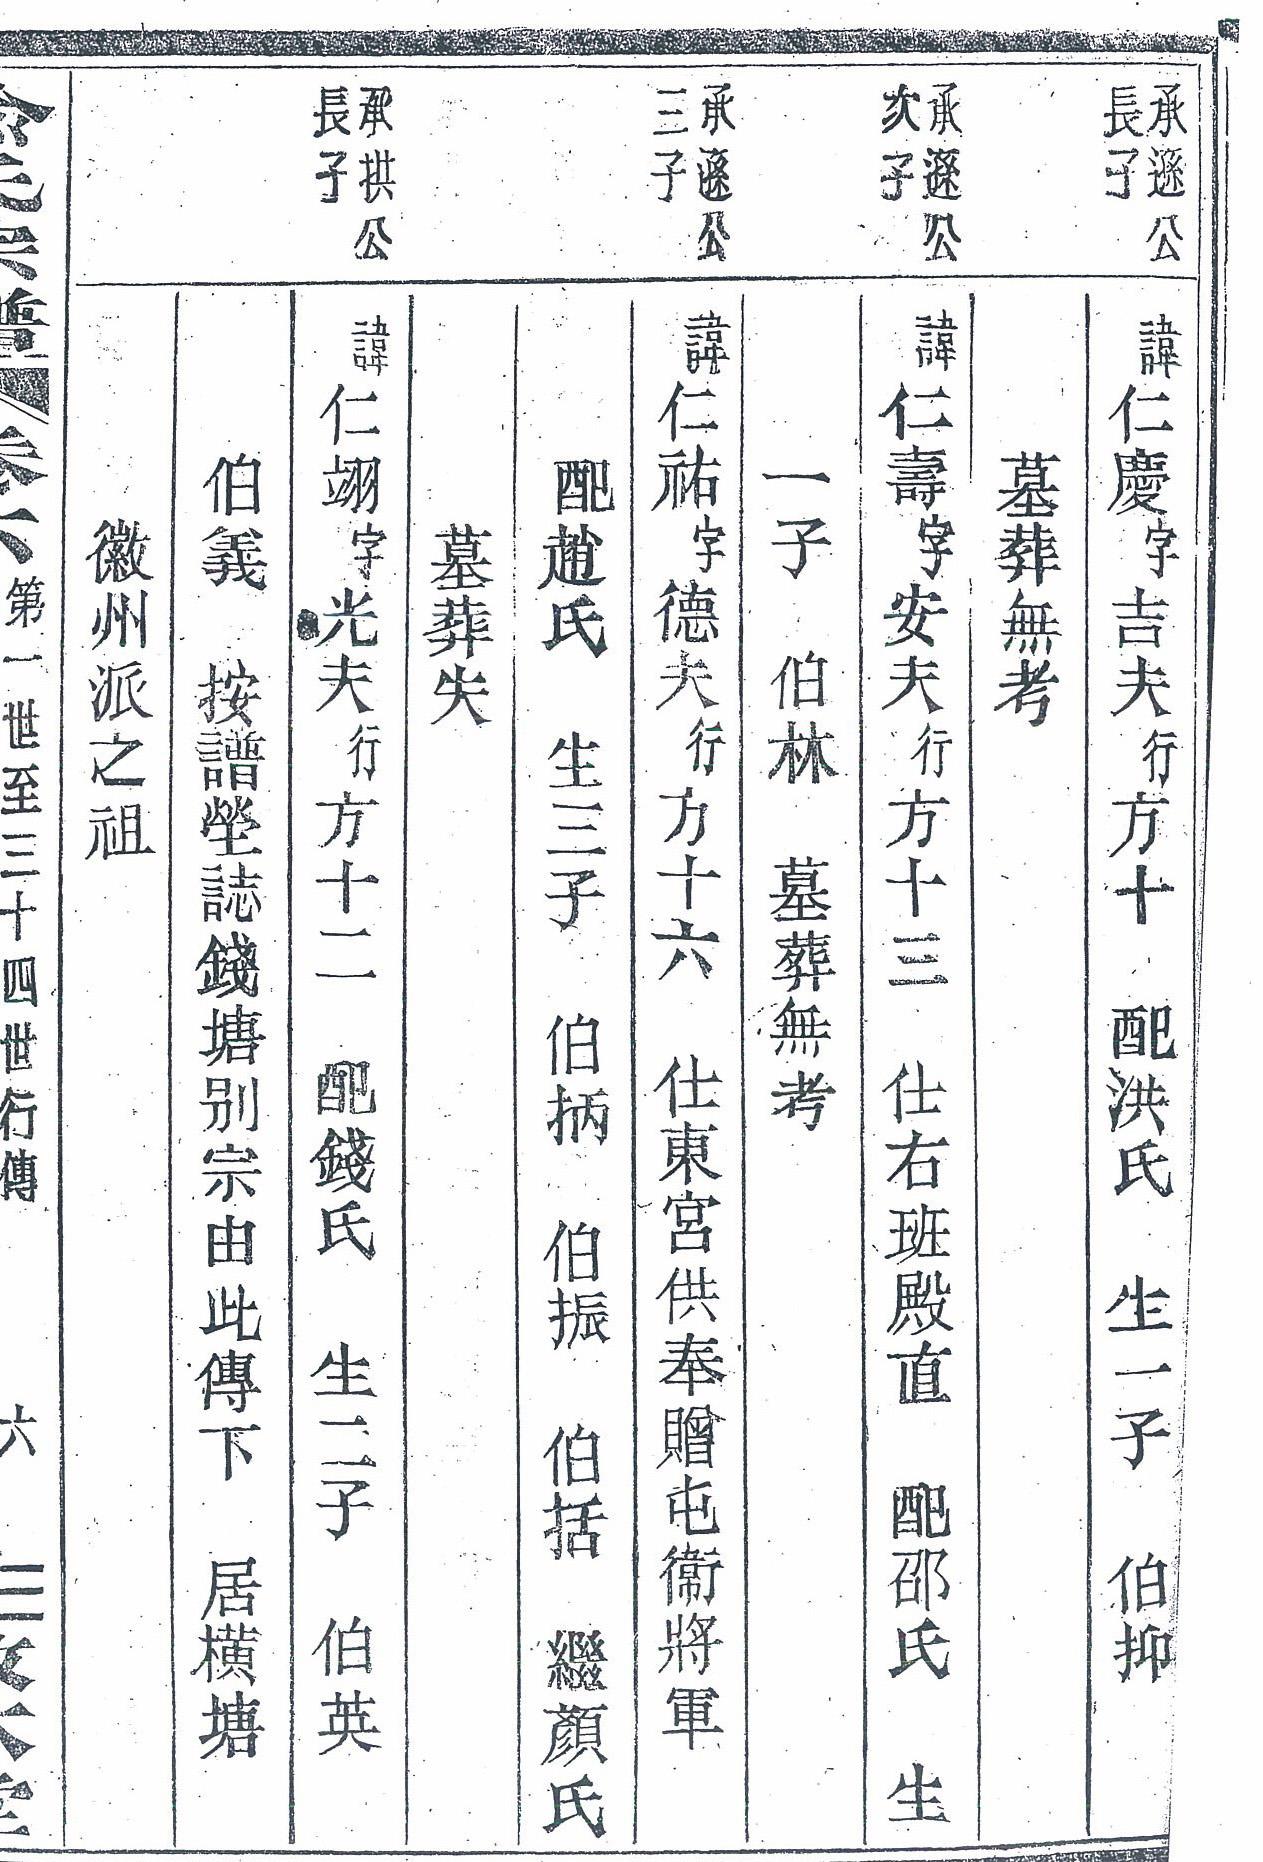 承遜公
長子
諱仁慶字吉夫行方十 配洪氏 生一子 伯抑
墓葬無考
承遜公
次子
諱仁壽字安夫行方十三 仕右班殿直 配邵氏 生
一子 伯林 墓葬無考
承遜公
三子
諱仁祐字德夫行方十六 仕東宮供奉贈屯衛將軍
配趙氏 生三子 伯柄 伯振 伯括 繼顏氏
墓葬失
承拱公
長子
諱仁翊字光夫行方十二 配錢氏 生二子 伯英
伯義 按譜塋誌錢塘別宗由此傳下 居橫塘
徽州派之祖
氏宗譜 卷六 第一世至三十四世行傳 六